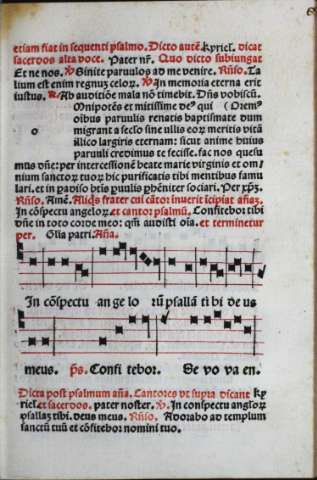 etiam fiat in sequenti psalmo. Dicto autē kyriel'. dicat
sacerdos alta voce. Pater nr̄. Quo dicto subiungat
Et ne nos. ℣ Sinite paruulos ad me venire. Rn̄so. Ta
lium est enim regnuꝫ celoꝝ. ℣ In memoria eterna erit
iustus. ℟ Ab auditiōe mala nō timebit. Dn̄s vobiscū.
o Mnipotēs et mitissime deꝰ qui Oremꝰ
oibus paruulis renatis baptismate dum
migrant a seclo sine vllis eoꝝ meritis vitā
illico largiris eternam: sicut anime huius
paruuli credimus te fecisse. fac nos quesu
mus dn̄e: per intercessionē beate marie virginis et om
nium sanctoꝝ tuoꝝ hic purificatis tibi mentibus famu
lari. et in padiso btīs puulis phēniter sociari. Per xp̄ꝫ.
Rn̄so. Amē. Aliq̄s frater cui cātor īnuerit īcipiat an̄aꝫ.
In cōspectu angeloꝝ. et cantor psalmū. Confitebor tibi
dn̄e in toto corde meo: qm̄ audisti oīa. et terminetur
per. Glīa patri. An̄a.
In cōspectu an ge lo rū psallā ti bi de us
meus. ps. Confi tebor. Se vo va en.
Dicta post psalmum an̄a. Cantores vt supra dicant ky
riel'. et sacerdos. pater noster. ℣. In conspectu angloꝝ
psallaꝫ tibi. deus meus. Rn̄so. Adorabo ad templum
sanctū tuū et cōfitebor nomini tuo.